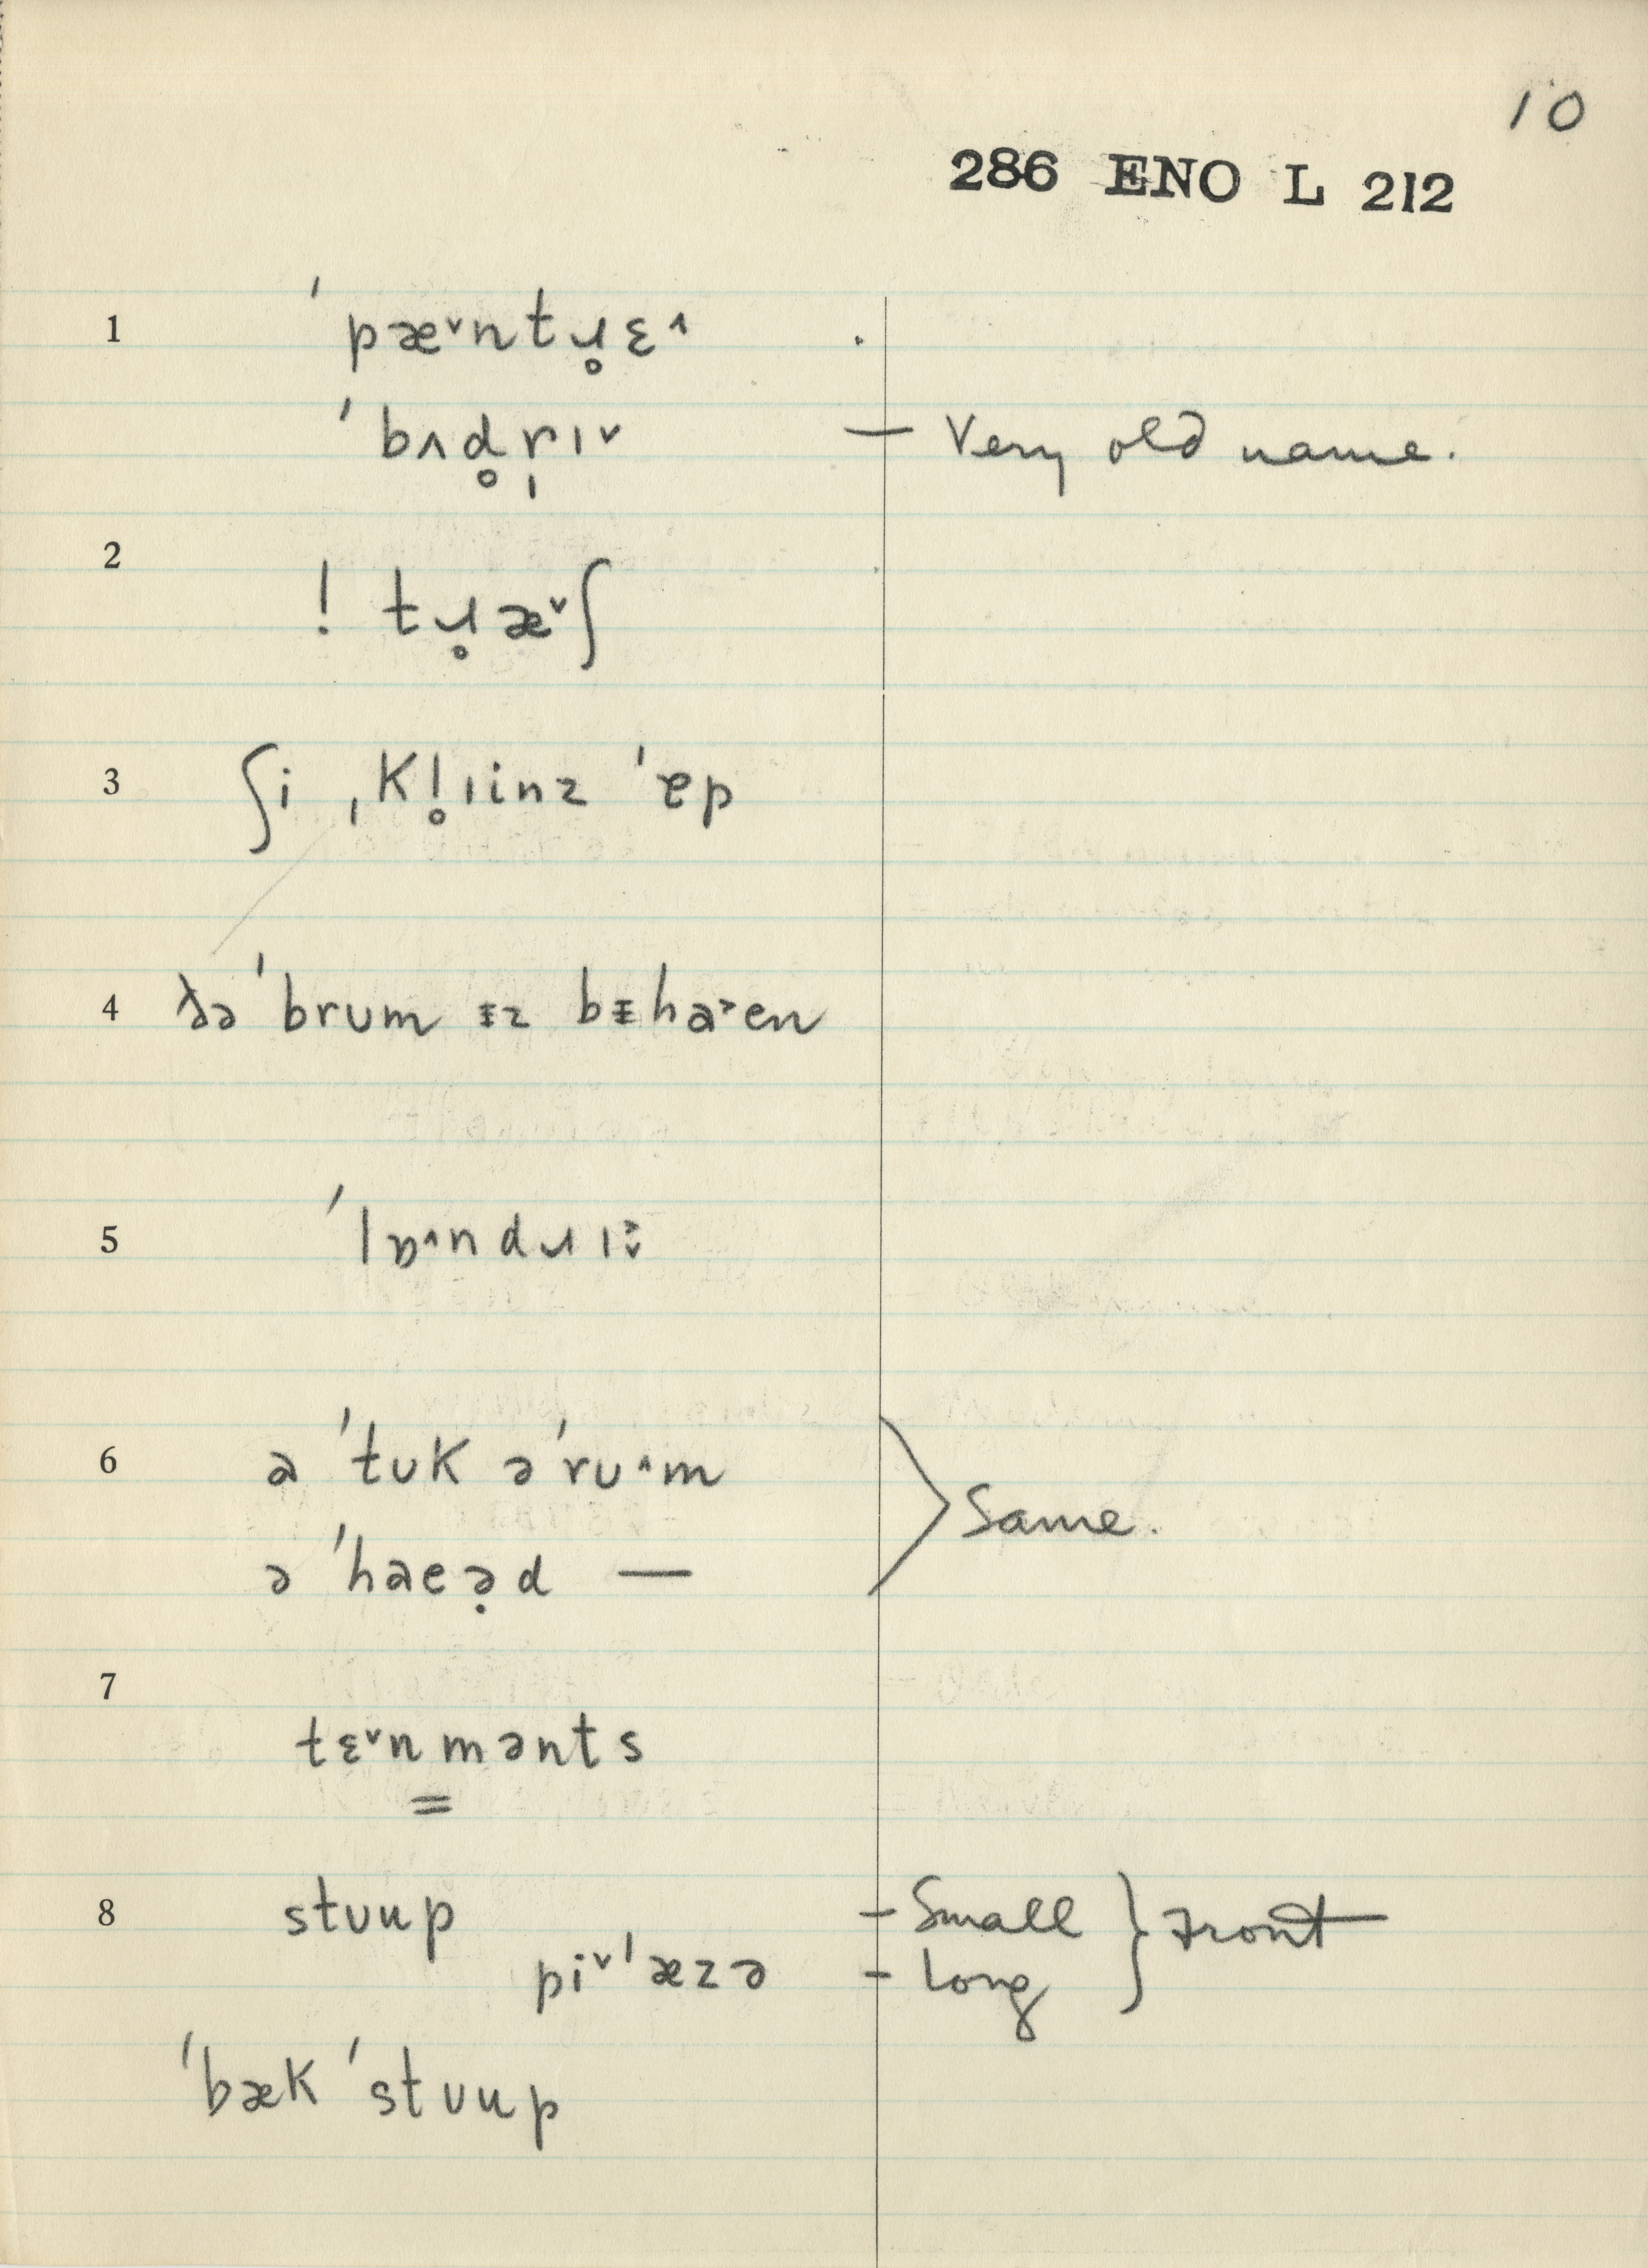 10
286 ENO L 212
1 ˈpæ˅ntɹ̥ɛ˄
ˈbʌd̥r̩ɪ˅ — Very old name.
2
! tɹ̥æ˅ʃ
3 ʃi ˌkl̥ɪinz ˈɐp
4 ðə ˈbrum ᵻz bᵻha˃en
5 ˈlɒ˄ndɹɪ˅˃
6 a ˈtʊk əˈrʊ˄m
ə ˈhaeə̣d — Same.
7
tɛ˅nmənts
=
8 stʊup – Small } Front
pi˅ˈæzə – Long
ˈbæk ˈstʊup